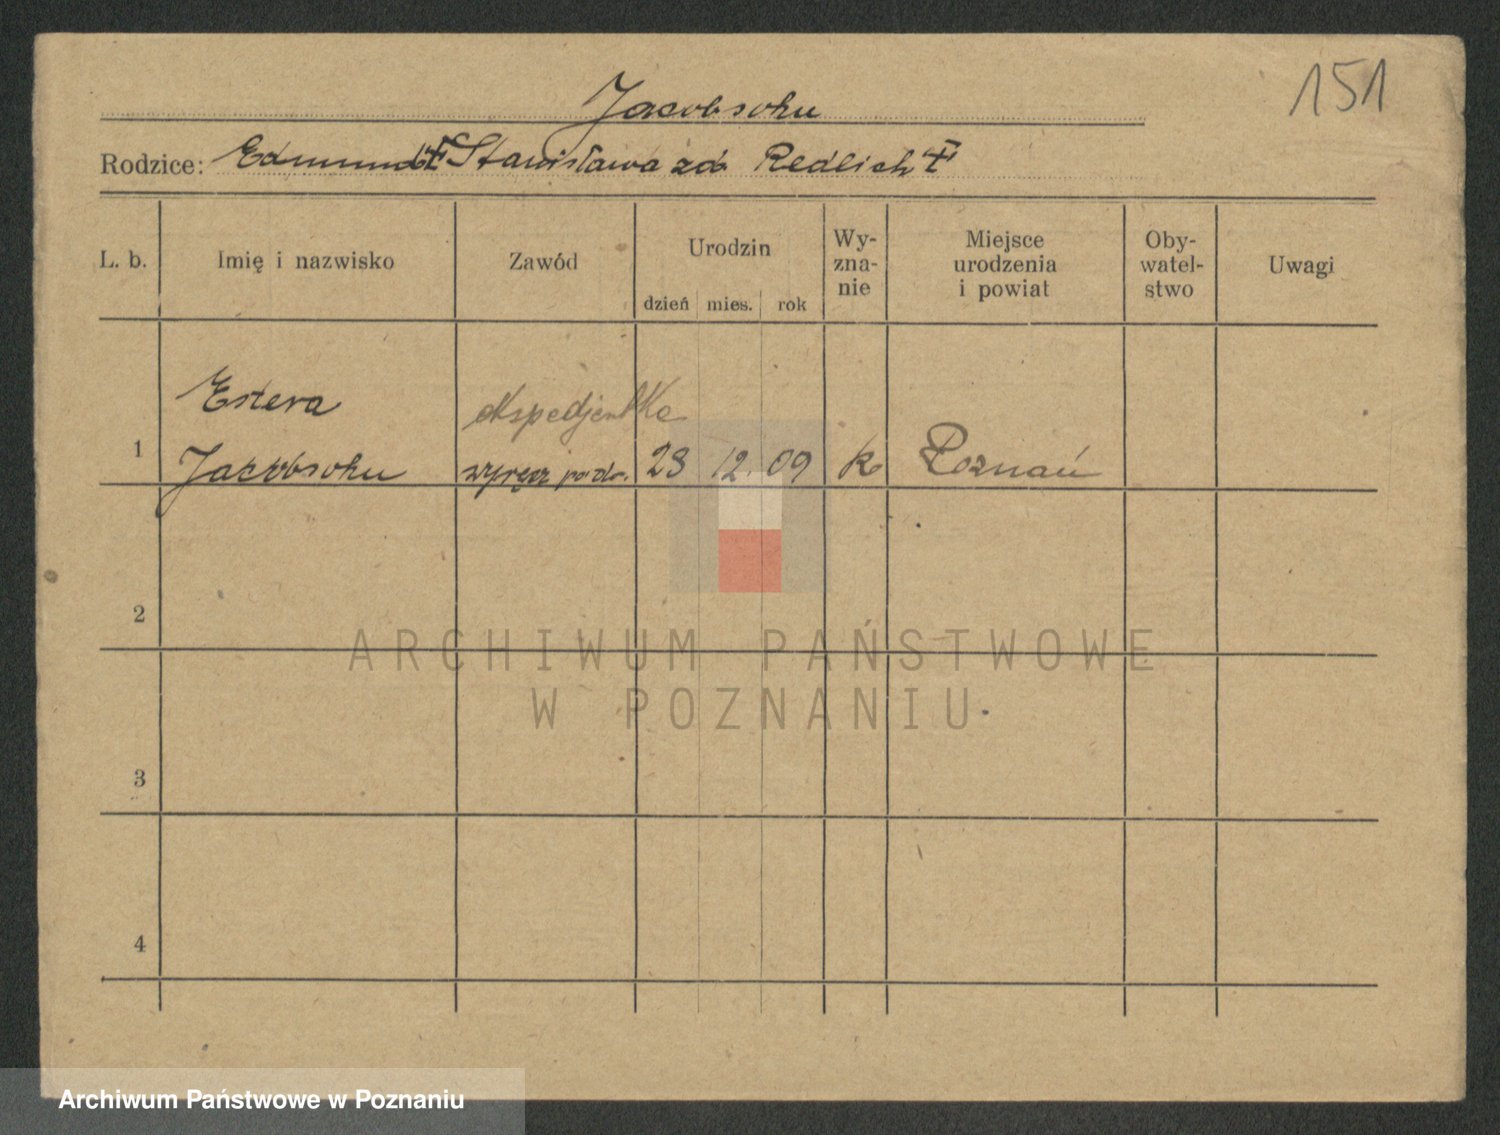 151
Jacobsohn
Rodzice: Edmund ‡ Stanisława zd. Redlich ‡
L. b. Imię i nazwisko Zawód Urodzin Wy- Miejsce Oby- Uwagi
zna- urodzenia watel-
dzień mies. rok nie i powiat stwo
Estera ekspedjentka
1 Jacobsohn 23 12. 09 k. Poznań
2
ARCHIWUM PAŃSTWOWE
W POZNANIU
3
4
Archiwum Państwowe w Poznaniu